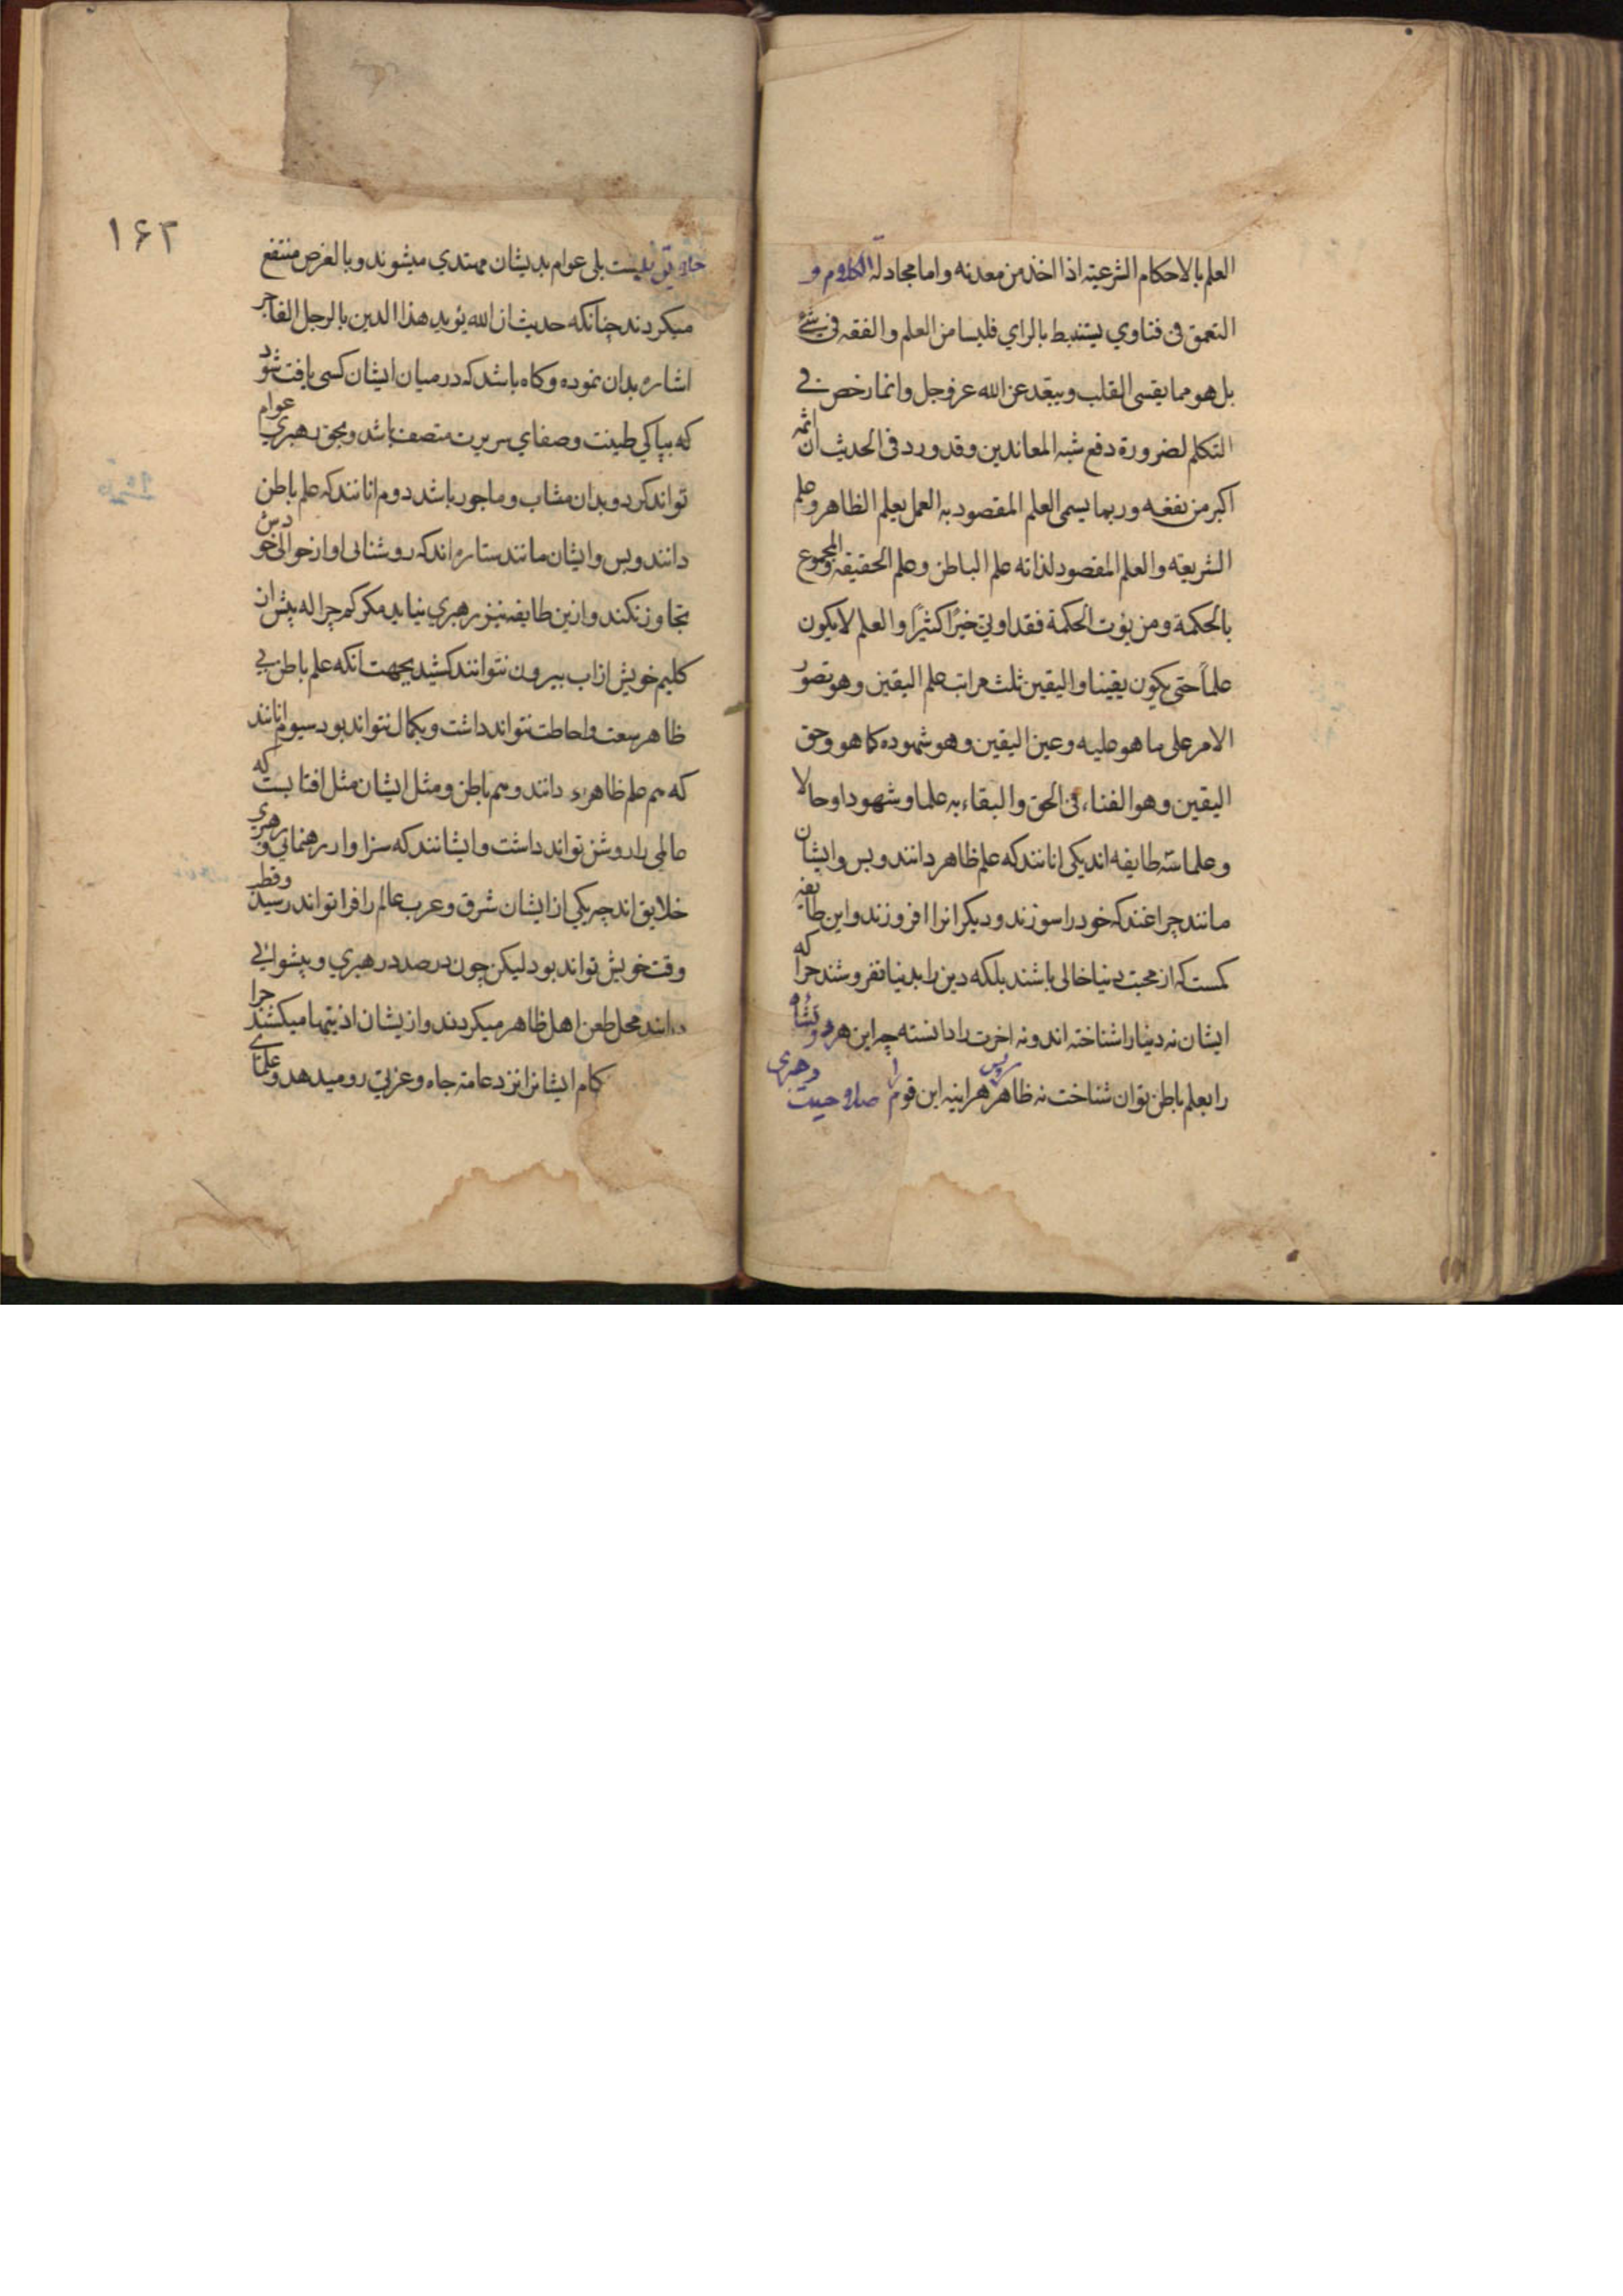 العلم بالاحکام الشرعیته اذا اخذ من معدنه واما مجادلة الکلام و
التعمق فی فتاوي یستنبط بالراي فلیسا من العلم والفقه فی شئ
بل هو مما یقسی القلب ویبعد عن الله عز وجل وانما رخص فی
التکلم لضرورة دفع شبه المعاندین وقد ورد فی الحدیث ان اثمه
اکبر من نفعه وربما یسمی العلم المقصود به العمل بعلم الظاهر وعلم
الشریعه والعلم المقصود لذاته علم الباطن وعلم الحقیقه والمجموع
بالحکمة ومن یؤت الحکمة فقد اوتی خیرًا کثیرًا والعلم لا یکون
علماً حتی یکون یقینا والیقین ثلث مراتب علم الیقین وهو تصور
الامر علی ما هو علیه وعین الیقین وهو شهوده کما هو وحق
الیقین وهو الفناء فی الحق والبقاء به علما وشهودا وحالا
وعلما سّه طایفه اند یکی انانند که علم ظاهر دانند وبس وایشان
مانند چراغند که خود را سوزند ودیکرانرا افروزند واین طایفه
کمست که از محبت دنیا خالی باشند بلکه دین را بدنیا نفروشند چرا که
ایشان نه دنیا را شناخته اند ونه اخرت را دانسته چه این هر دو نشاه
را بعلم باطن توان شناخت نه ظاهر هراینه این قوم را صلاحیت رهبری
۱۶۲
خلایق نیست بلی عوام بدیشان مهتدي میشوند وبالعرض منتفع
میکردند چنانکه حدیث ان الله یؤید هذا الدین بالرجل الفاجر
اشاره بدان نموده وکاه باشد که در میان ایشان کسی یافت شود
که بپاکي طینت وصفاي سریرت متصف باشد وبحق رهبري عوام
تواند کرد وبدان مثاب وماجور باشد دوم انانند که علم باطن
دانند وبس وایشان مانند ستاره اند که روشنائی او از حوالی خودش
تجاوز نکند وازین طایفه نیز رهبري نیاید مکر کم چرا له بیش ان
کلیم خویش از اب بیرون نتوانند کشید بجهت انکه علم باطن بی
ظاهر سعت واحاطت نتواند داشت وبکمال نتواند بود سیوم انانند
که هم علم ظاهر دانند وهم باطن ومثل ایشان مثل افتابست که
عالمی را روشن تواند داشت وایشانند که سزاوار رهنمائی و رهبری
خلایق اند چه یکی از ایشان شرق وغرب عالم را فرا تواند رسید وقطب
وقت خویش تواند بود لیکن چون در صدد رهبري وپیشوائی
درایند محل طعن اهل ظاهر میکردند وازیشان اذیتها میکشند چرا
کام ایشانرا نزد عامه جاه وعزتی رو میدهد وعلمای